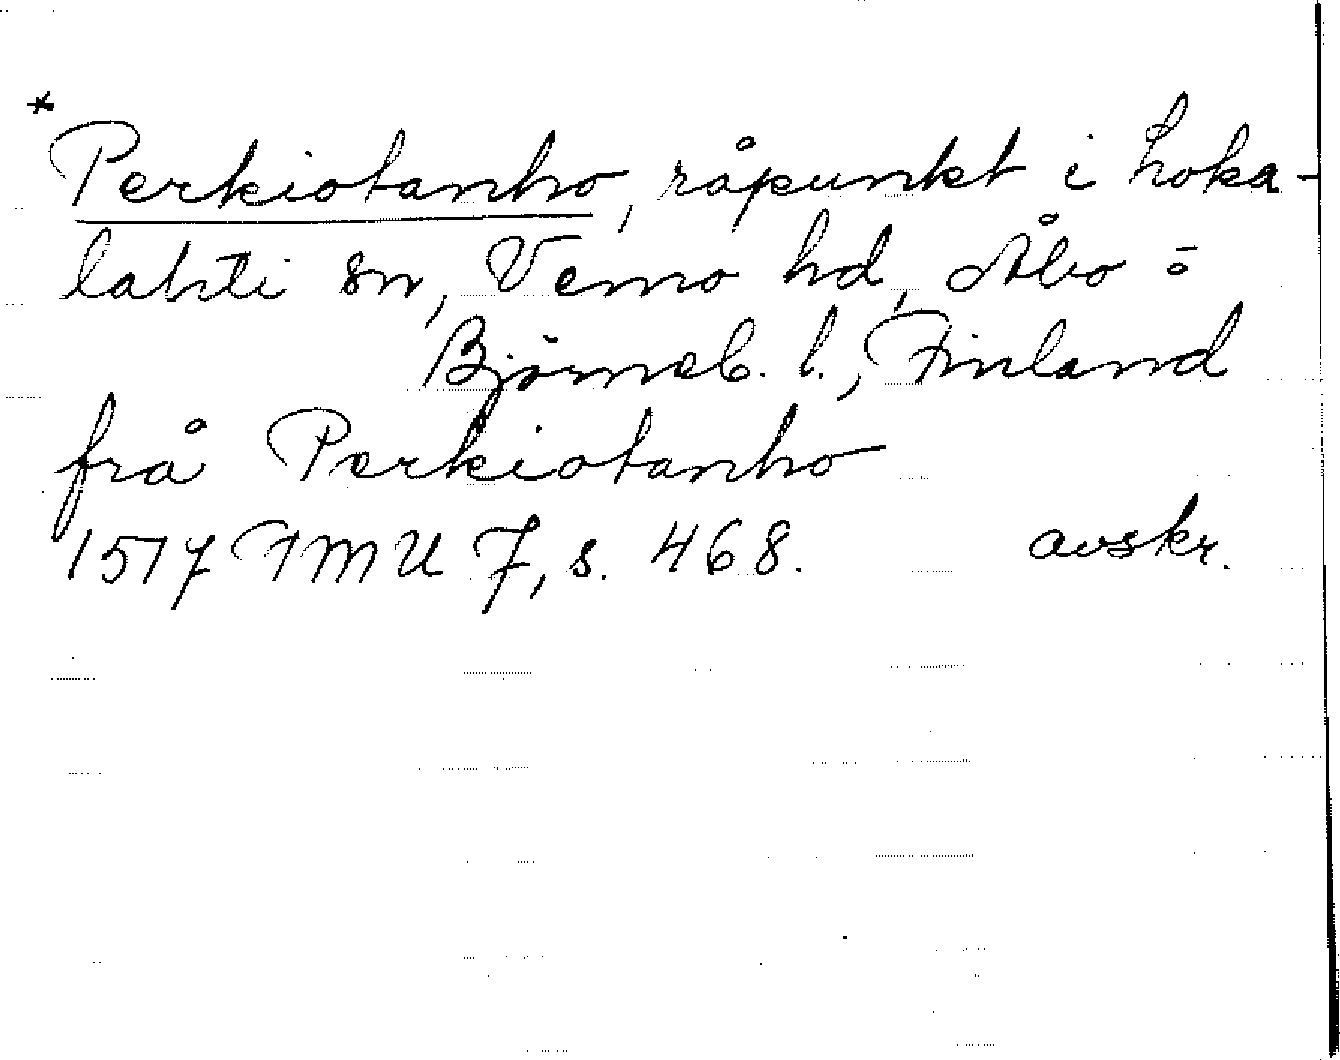 *
Perkiotanho, råpunkt i Loka-
lahti sn, Vemo hd, Åbo o
Björneb. l., Finland
frå Perkiotanho
1517 FMU 7, s. 468. avskr.